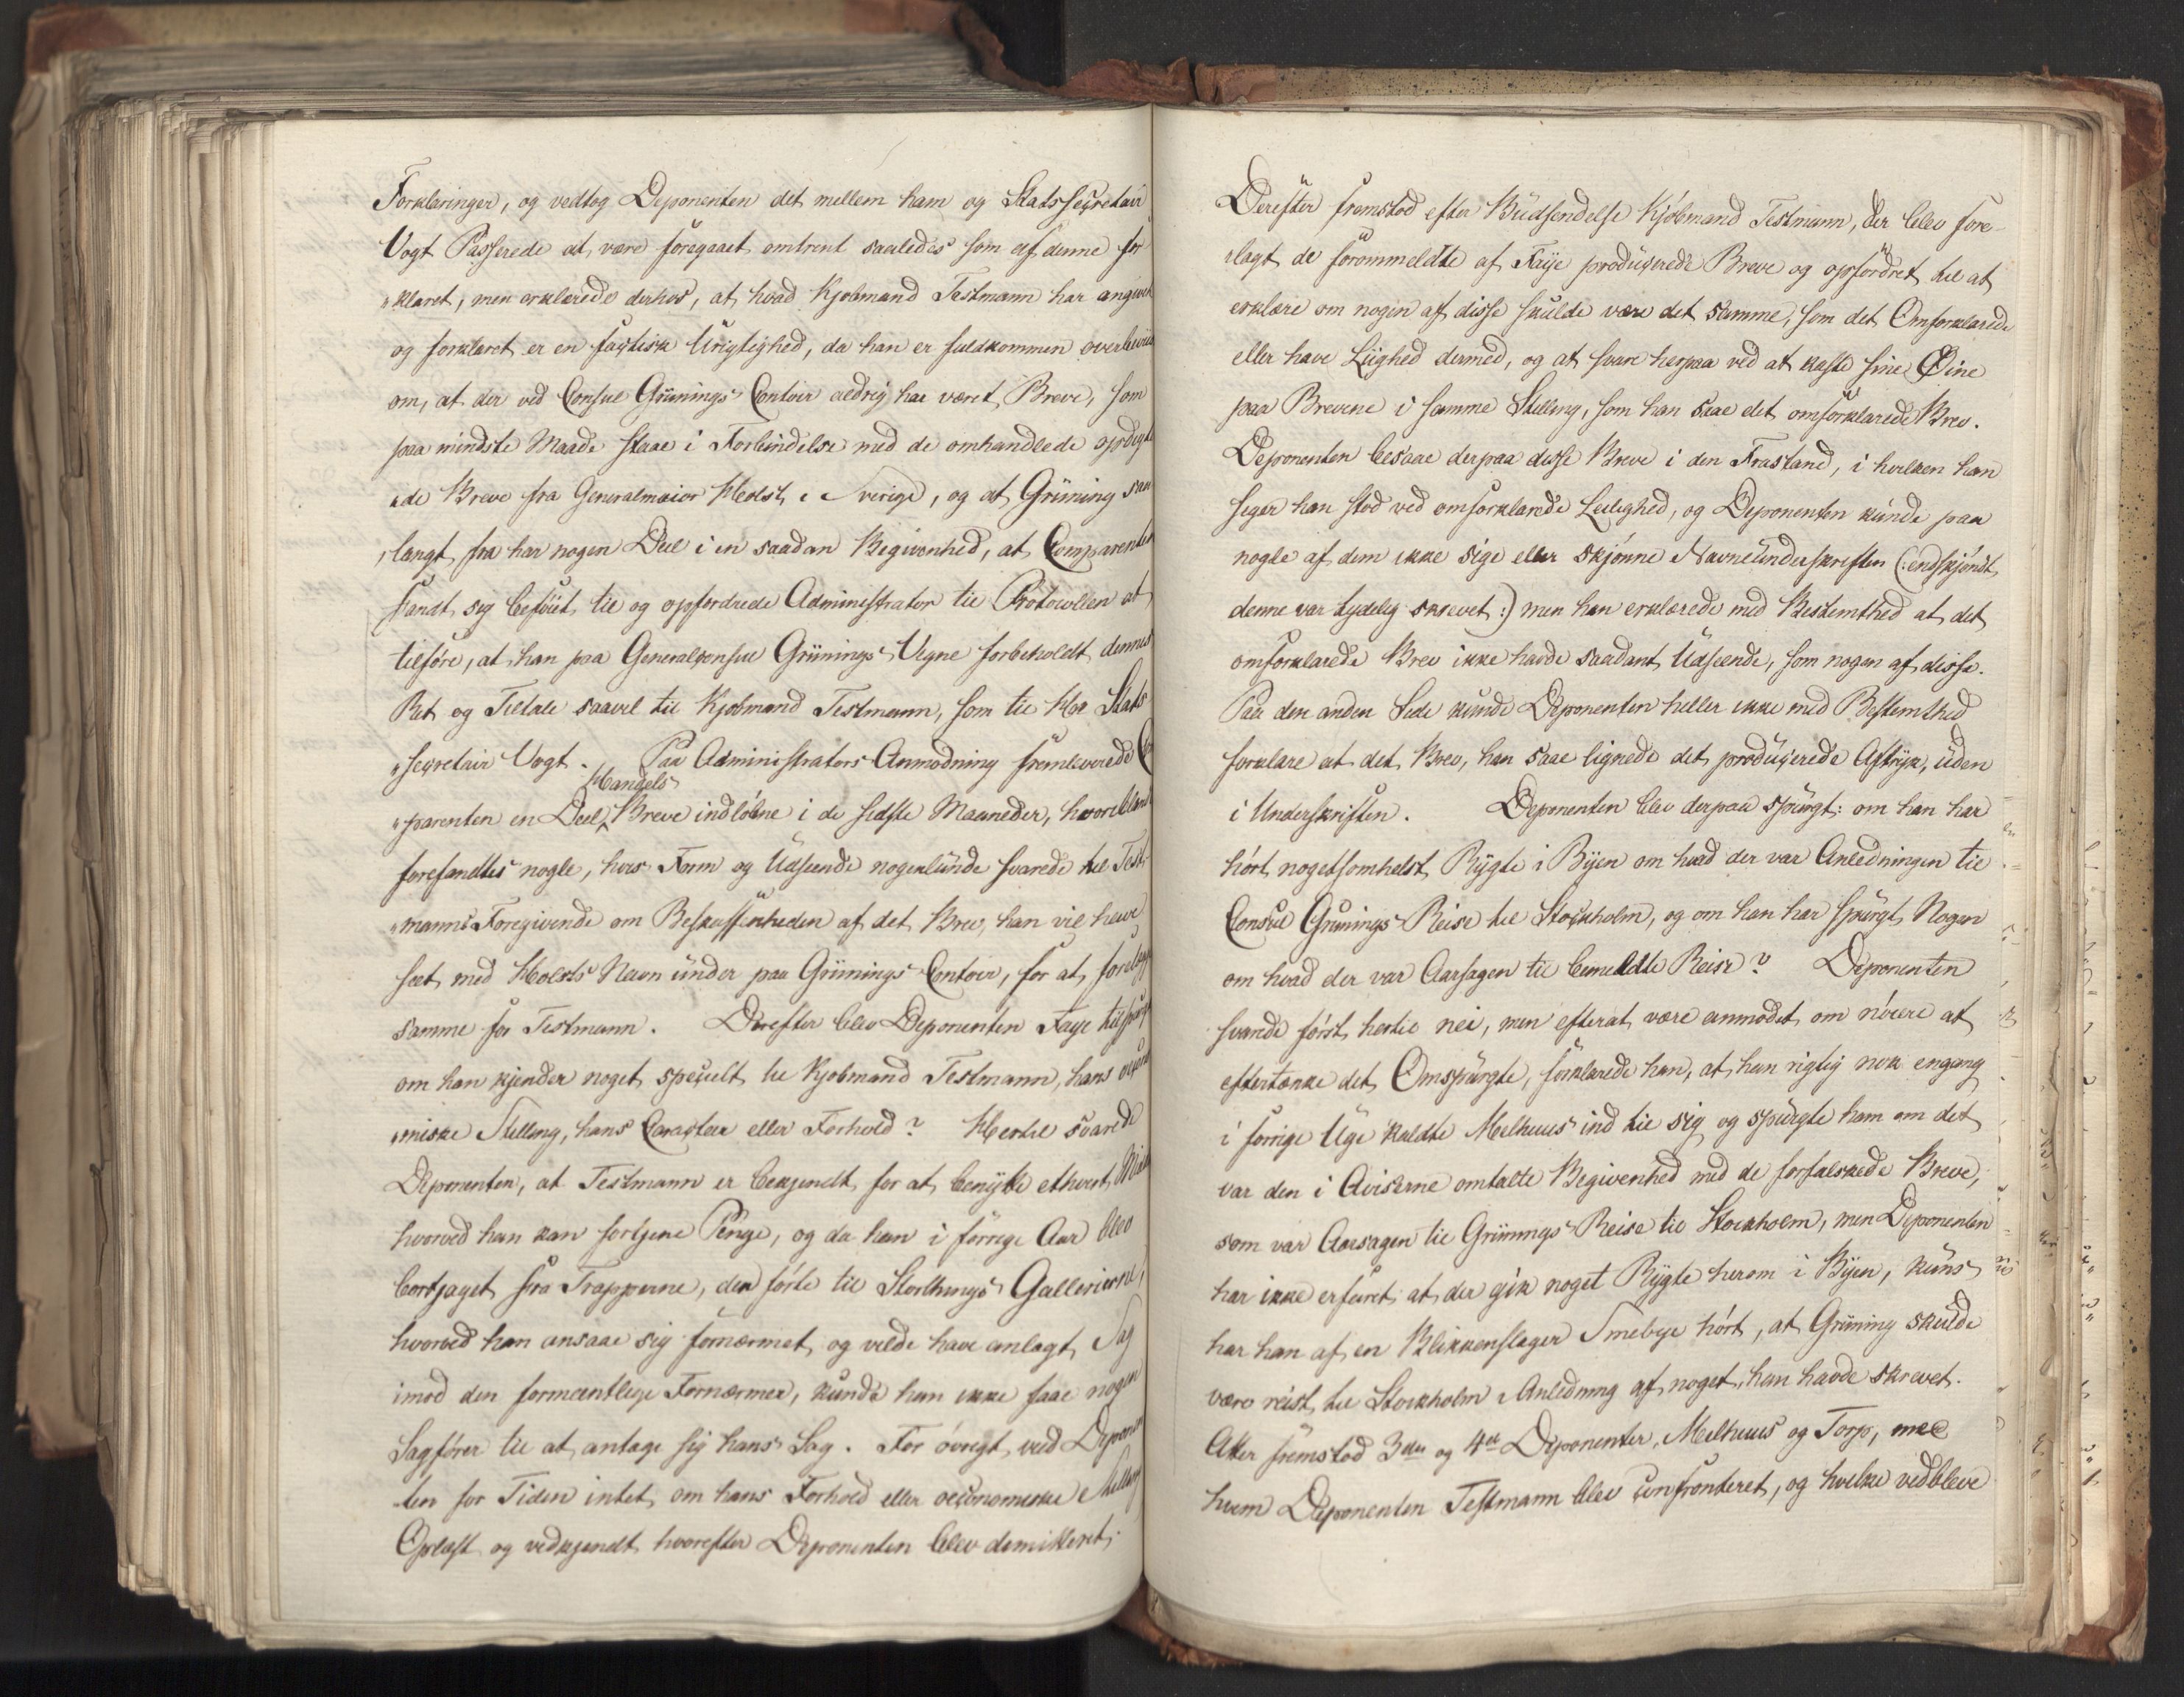 Forklaringer, og vedtog Deponenten det mellem ham og Statssecretair
Vogt Passerede at være foregaaet omtrent saaledes som af denne for
„klaret, men erklærede derhos, at hvad Kjøbmand Testmann har angivet
og forklaret er en factisk Urigtighed, da han er fuldkommen overbeviist
om, at der ved Consul Grünings Contoir aldrig har været Breve, som
paa mindste Maade staae i Forbindelse med de omhandlede opdigte
„de Breve fra Generalmaior Holst i Sverige, og at Grüning saa
„langt fra har nogen Deel i en saadan Begivenhed, at Comparenten
fandt sig beføiet til og opfordrede Administrator til Protocollen at
tilføre, at han paa Generalconsul Grünings Vegne forbeholdt dennes
Ret og Tiltale saavel til Kjøbmand Testmann, som til Hr Stats
„secretair Vogt. Paa Administrators Anmodning fremleverede Com
„parenten en Deel Handels Breve indløbne i de sidste Maaneder, hvoriblandt
forefandtes nogle, hvis Form og Udseende nogenlunde svarede til Test-
„manns Foregivende om Beskaffenheden af det Brev, han vil have
seet med Holsts Navn under paa Grünings Contoir, for at forelægge
samme for Testmann. Derefter blev Deponenten Faye tilspurgt
om han kjender noget specielt til Kjøbmand Testmann, hans oecono
„miske Stilling, hans Caracteer eller Forhold? Hertil svarede
Deponenten, at Testmann er bekjendt for at benytte ethvert Middel
hvorved han kan fortjene Penge, og da han i forrige Aar blev
bortjaget fra Trapperne, der førte til Storthings Gallerierne,
hvorved han ansaae sig fornærmet, og vilde have anlagt Sag
imod den formeentlige Fornærmer, kunde han ikke faae nogen
Sagfører til at antage sig hans Sag. For øvrigt veed Deponen
-ten for Tiden intet om hans Forhold eller oeconomiske Stilling
Oplæst og vedkjendt hvorefter Deponenten blev demitteret.
Derefter fremstod efter Budsendelse Kjøbmand Testmann, der blev fore-
„lagt de forommeldte af Faye producerede Breve og opfordret til at
erklære om nogen af disse skulde være det samme, som det Omforklarede
eller have Liighed dermed, og at svare herpaa ved at kaste sine Øine
paa Brevene i samme Stilling, som han saae det omforklarede Brev.
Deponenten besaae derpaa disse Breve i den Frastand, i hvilken han
siger han stod ved omforklarede Leilighed, og Deponenten kunde paa
nogle af dem ikke sige eller skjønne Navneunderskriften (: endskjøndt
denne var tydelig skrevet :) men han erklærede med Bestemthed at det
omforklarede Brev ikke havde saadant Udseende, som nogen af disse.
Paa den anden Side kunde Deponenten heller ikke med Bestemthed
forklare at det Brev, han saae lignede det producerede Aftryk, uden
i Underskriften. Deponenten blev derpaa spurgt: om han har
hørt nogetsomhelst Rygte i Byen om hvad der var Anledningen til
Consul Grünings Reise til Stockholm, og om han har spurgt Nogen
om hvad der var Aarsagen til bemeldte Reise? Deponenten
svarede først hertil nei, men efterat være anmodet om nøiere at
eftertænke det Omspurgte, forklarede han, at han rigtig nok engang
i forrige Uge kaldte Melhuus ind til sig og spurgte ham om det
var den i Aviserne omtalte Begivenhed med de forfalskede Breve,
som var Aarsagen til Grünings Reise til Stockholm, men Deponenten
har ikke erfaret at der gik noget Rygte herom i Byen, kuns
har han af en Blikkenslager Smebye hørt, at Grüning skulde
være reist til Stockholm i Anledning af noget, han havde skrevet.
Atter fremstod 3die og 4de Deponenter, Melhuus og Torp, med
hvem Deponenten Testmann blev confronteret, og hvilke vedbleve